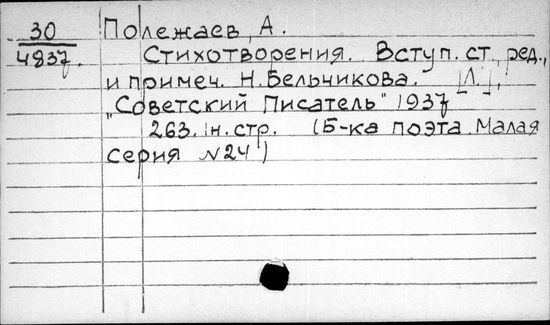 30
4837.
Полежаев, А.
Стихотворения. Вступ. ст., ред.,
и примеч. Н. Бельчикова. [Л.],
"Советский Писатель" 1937
263. 1н. стр. (Б-ка поэта. Малая
серия №24)